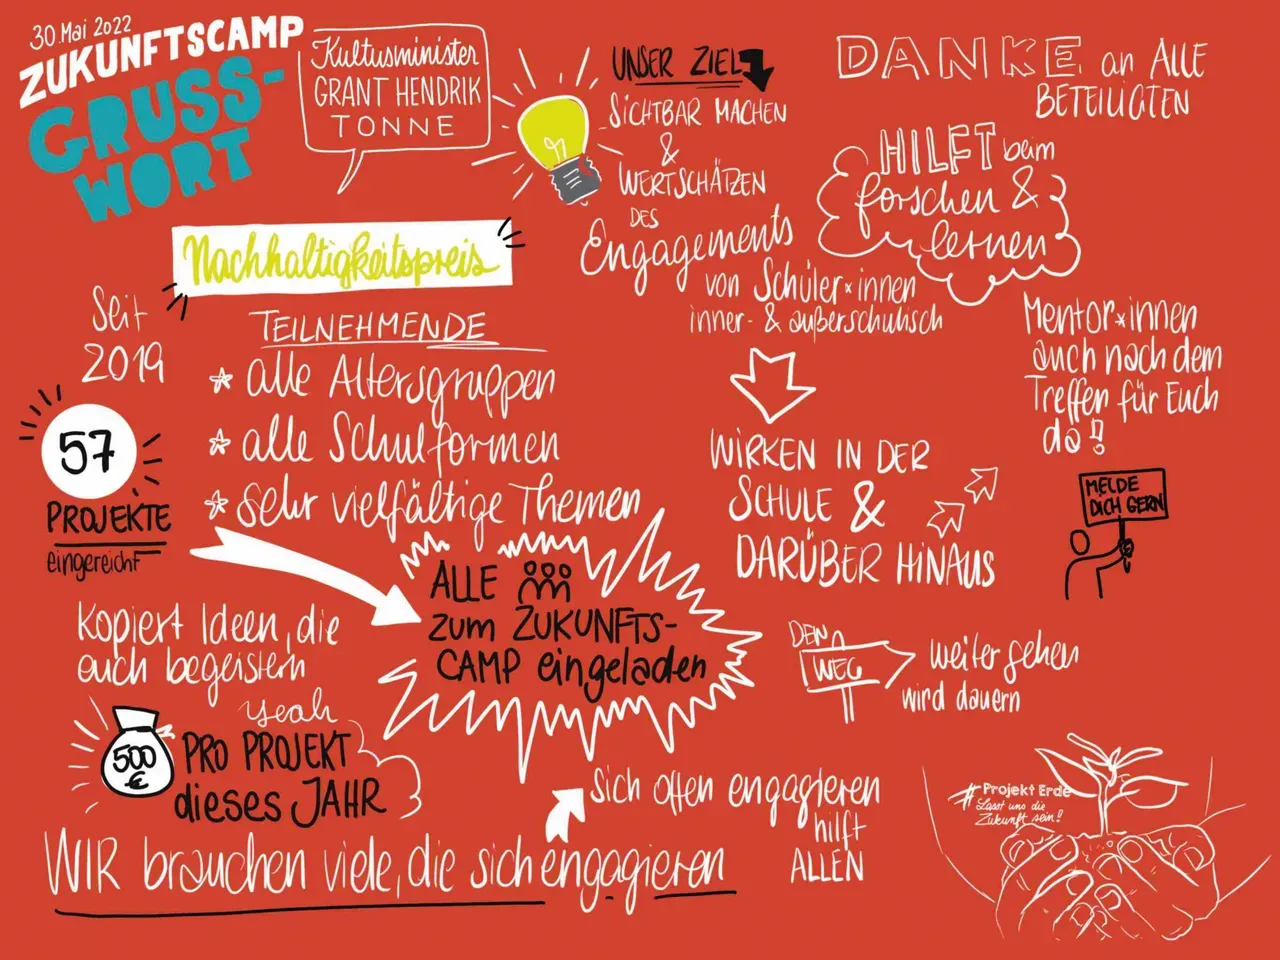 30. Mai 2022
ZUKUNFTSCAMP
GRUSS-
WORT
Kultusminister
GRANT HENDRIK
TONNE
UNSER ZIEL
SICHTBAR MACHEN
&
WERTSCHÄTZEN
DES
Engagements
von Schüler*innen
inner- & außerschulisch
WIRKEN IN DER
SCHULE &
DARÜBER HINAUS
DANKE an ALLE
BETEILIGTEN
HILFT beim
forschen &
lernen
Mentor*innen
auch nach dem
Treffen für Euch
da!
MELDE
DICH GERN
Nachhaltigkeitspreis
Seit
2019
57
PROJEKTE
eingereicht
TEILNEHMENDE
* alle Altersgruppen
* alle Schulformen
* sehr vielfältige Themen
ALLE
zum ZUKUNFTS-
CAMP eingeladen
Kopiert Ideen, die
euch begeistern
yeah
500
€
PRO PROJEKT
dieses JAHR
DEIN
WEG
weiter gehen
wird dauern
Sich offen engagieren
hilft
ALLEN
WIR brauchen viele, die sich engagieren
# Projekt Erde
Lasst uns die
Zukunft sein!